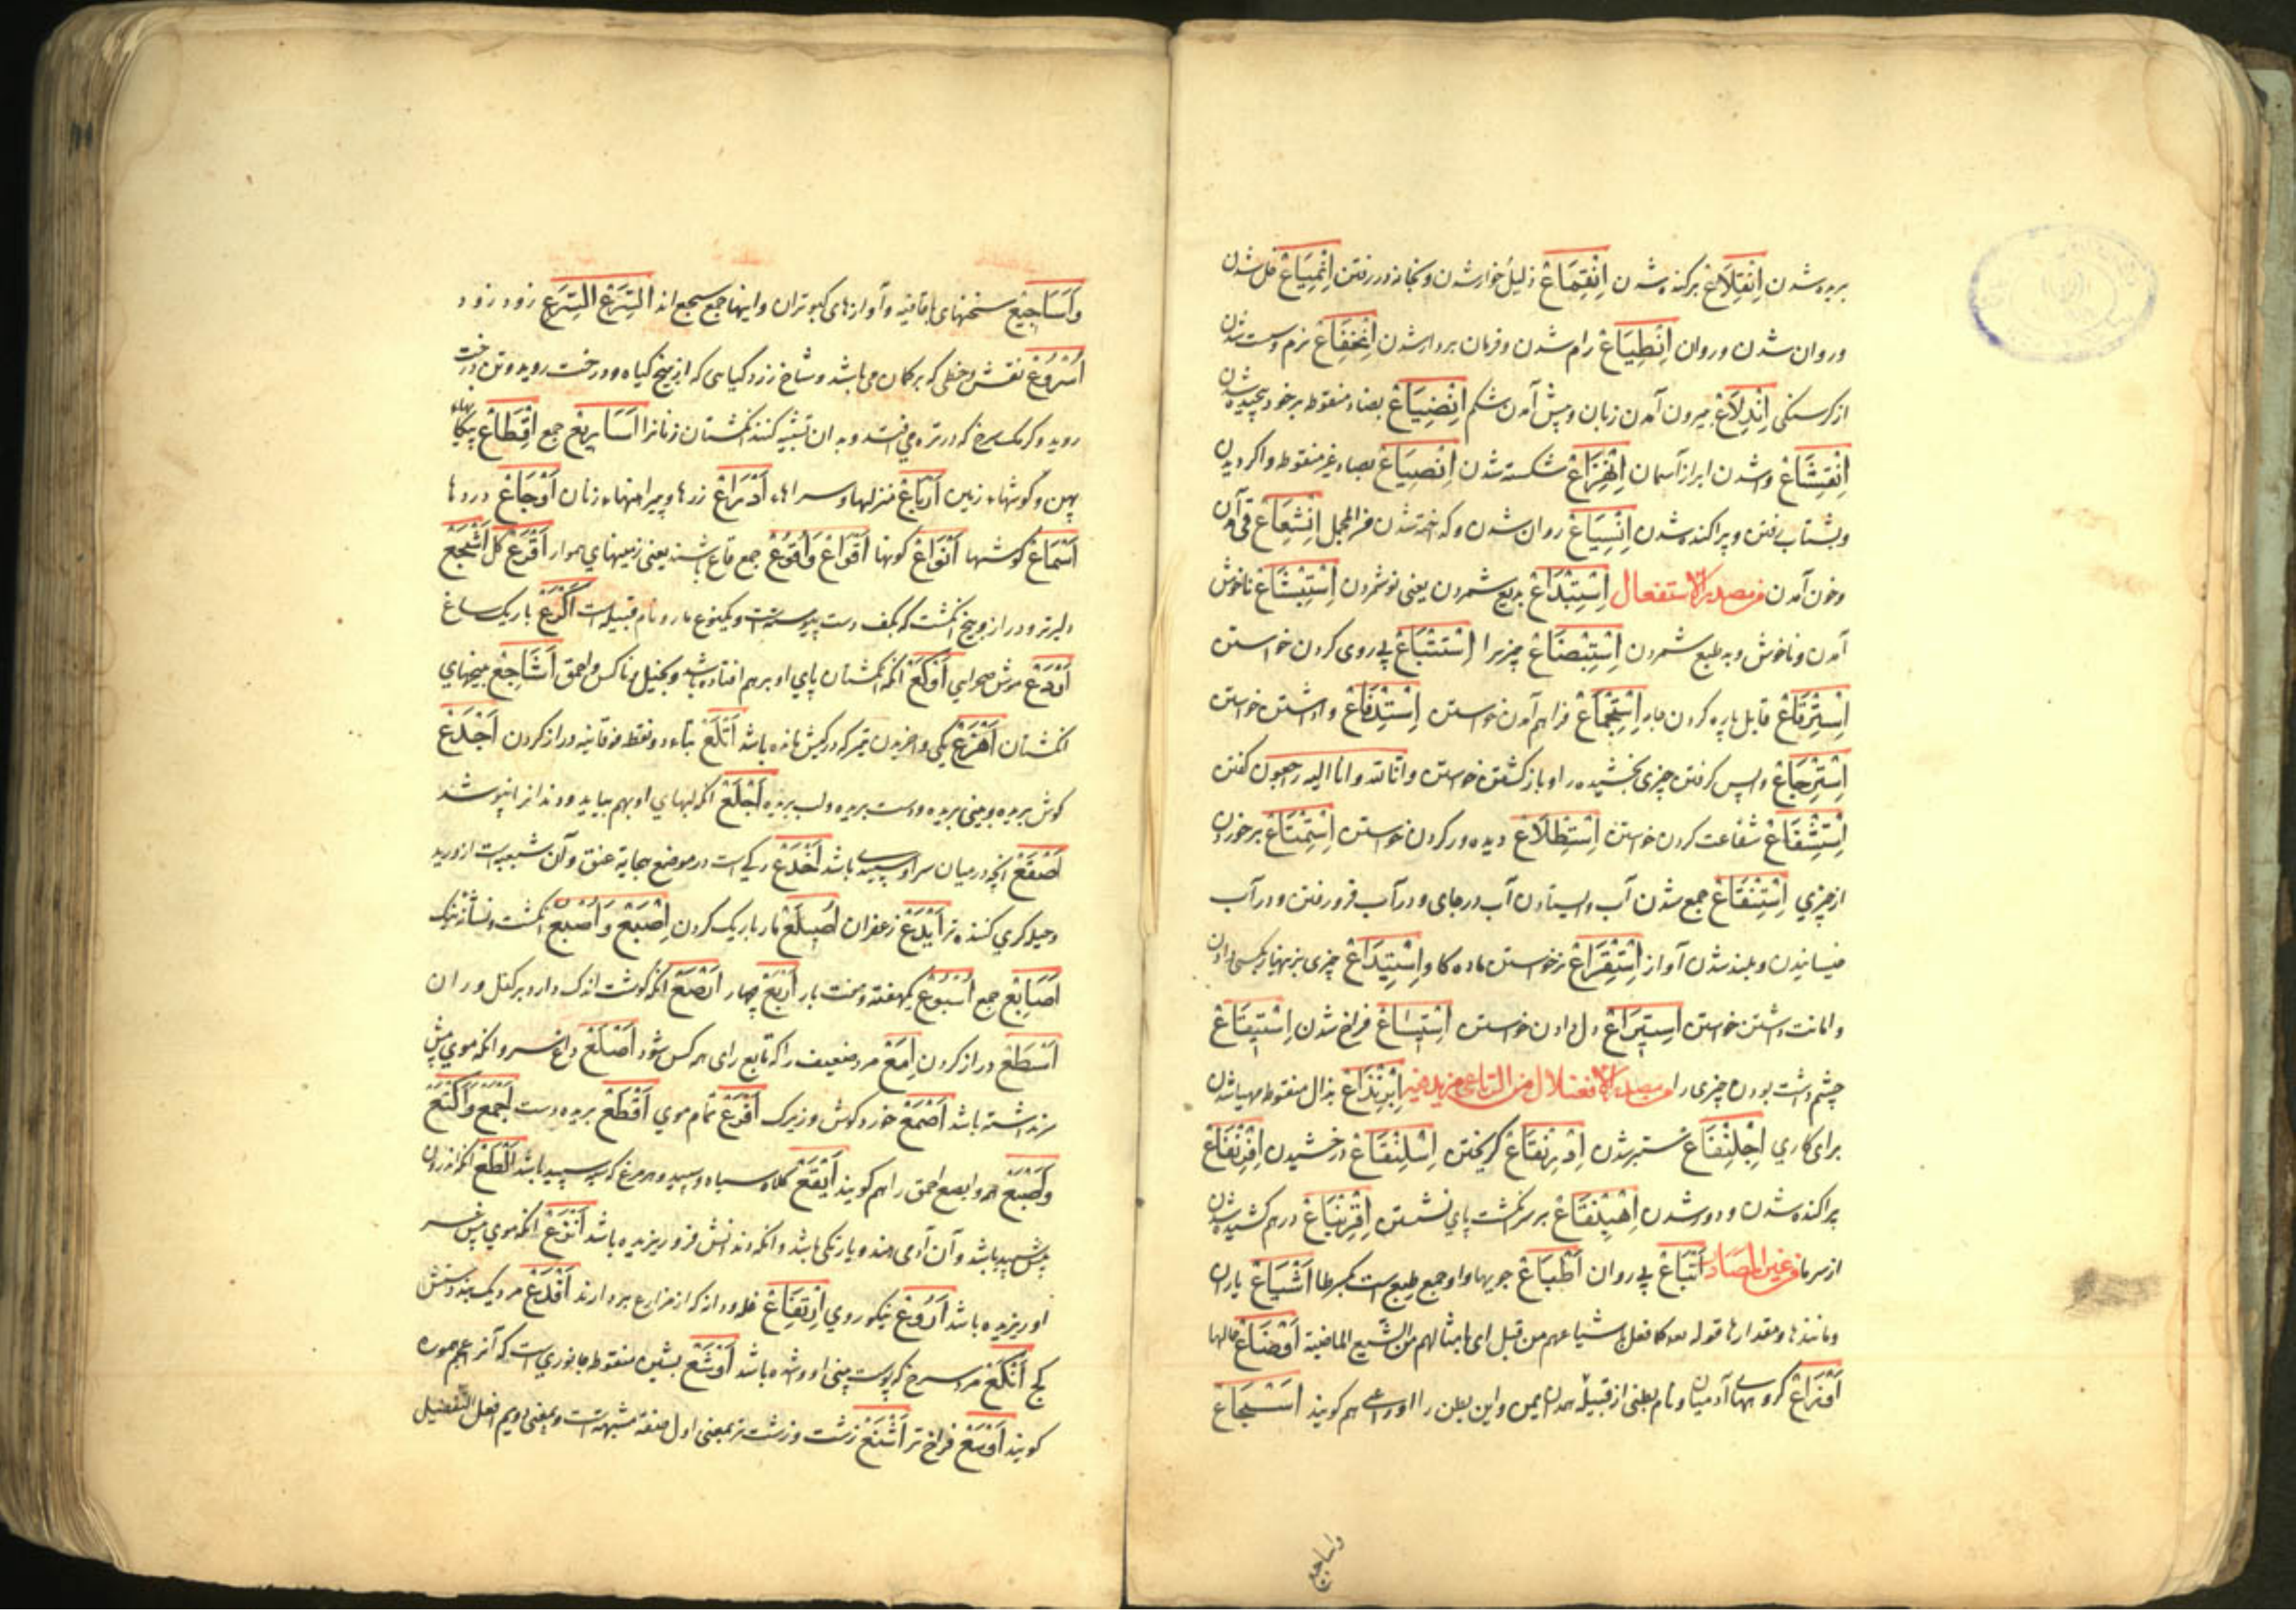 بریده شدن اِنْقِلَاعْ برکنده شدن اِنْقِمَاعْ ذلیل خوار شدن و بخانه در رفتن اِنْمِیَاعْ حل شدن
و روان شدن و روان اِنْطِیَاعْ رام شدن و فرمان بردار شدن اِنْخِفَاعْ نرم و سست شدن
از کرسنکی اِنْدِلَاعْ بیرون آمدن زبان و پیش آمدن شکم اِنْضِیَاعْ بضاد منقوطه بر خود پیچیده شدن
اِنْقِشَاعْ وا شدن ابر از آسمان اِنْهِزَاعْ شکسته شدن اِنْصِیَاعْ بصاد غیر منقوطه واکردیدن
و بشتاب رفتن و پراکنده شدن اِنْسِیَاعْ روان شدن و کداخته شدن من المجمل اِنْثِعَاعْ قی آمدن
و خون آمدن من مصدر الاستفعال اِسْتِبْدَاعْ بدیع شمردن یعنی نو شمردن اِسْتِبْشَاعْ ناخوش
آمدن و ناخوش و بد طبع شمردن اِسْتِبْضَاعْ چیزیرا اِسْتِتْبَاعْ پی روی کردن خواستن
اِسْتِرْقَاعْ قابل پاره کردن جامه اِسْتِجْمَاعْ فراهم آمدن خواستن اِسْتِدْفَاعْ وا داشتن خواستن
اِسْتِرْجَاعْ واپس کرفتن چیزی بخشیده را و باز کشتن خواستن و انا لله و انا الیه راجعون کفتن
اِسْتِشْفَاعْ شفاعت کردن خواستن اِسْتِطْلَاعْ دیده ور کردن خواستن اِسْتِمْتَاعْ برخوردن
از چیزی اِسْتِنْقَاعْ جمع شدن آب و ایستادن آب در جای و در آب فرو رفتن و در آب
خیسانیدن و بلند شدن آواز اِسْتِقْرَاعْ نر خواستن ماده کاو اِسْتِیدَاعْ چیزی بزنهار بکسی دادن
و امانت داشتن خواستن اِسْتِیزَاعْ دل دادن خواستن اِسْتِیسَاعْ فراخ شدن اِسْتِیقَاعْ
چشم داشت بودن چیزی را من مصدر الافعنلال من الرباعی مزید فیه اِبْرِنْذَاعْ بذال منقوطه مهیا شدن
برای کاری اِجْلِنْفَاعْ ستبر شدن اِدْرِنْقَاعْ کریختن اِسْلِنْقَاعْ درخشیدن اِفْرِنْقَاعْ
پراکنده شدن و دور شدن اِهْبِنْقَاعْ بر سر انکشت پای نشستن اِقْرِنْبَاعْ درهم کشیده شدن
از سرما من غیر المصادر اَتْبَاعْ پی روان اَطْبَاعْ جویها و او جمع طبع است بکسر طا اَشْیَاعْ یاران
و مانندها و مقدارها قوله کما فعل باشیاعهم من قبل ای بامثالهم من الشیع الماضیة اَوْضَاعْ حالها
اَوْزَاعْ کروههای آدمیان و نام بطنی از قبیله همدان یمن و این بطن را اوزاعی هم کویند اَسْجَاعْ
واساجیع
وَاَسَاجِیعْ سخنهای باقافیه و آوازهای کبوتران و اینها جمع سجع اند اَلسَّرَعْ اَلسَّرَعْ زود زود
اُسْرُوعْ نقش و خطی که بر کمان می باشد و شاخ زرد کیاهی که از بیخ کیاه و درخت روید و تن درخت
روید و کرمک سرخ که در تره می افتد و بدان تشبیه کنند انکشتان زنانرا اَسَارِیعْ جمع اَقْطَاعْ پیکانهاء
پهن و کوشهاء زمین اَرْبَاعْ منزلها و سراها اَدْرَاعْ زرها و پیراهنهاء زنان اَوْجَاعْ دردها
اَسْمَاعْ کوشها اَنْوَاعْ کونها اَقْوَاعْ وَاَقْوُعْ جمع قاع باشند یعنی زمینهای هموار اَقْرَعْ کل اَشْجَعْ
دلیرتر و دراز و بیخ انکشت که بکف دست پیوسته است و یکنوع مار و نام قبیله است اَکْرَعْ باریک ساغ
موش صحرایی اَوْکَعْ آنکه انکشتان پای او بر هم افتاده باشد و بخیل و ناکس و احمق اَشَاجِعْ بیخهای
انکشتان اَهْزَعْ یکی و آخرین تیر که در کیش مانده باشد اَتْلَعْ بتاء دو نقطه فوقانیه دراز کردن اَجْدَعْ
کوش بریده و بینی بریده و دست بریده و لب بریده اَجْلَعْ آنکه لبهای او بهم نیاید و دندانرا نپوشد
اَصْقَعْ آنچه در میان سر او سپیدی باشد اَخْدَعْ رکی است در موضع حجامة عنق و آن شعبه است از ورید
و حیله کری کننده تر اَیْدَعْ زعفران اَصْلَعْ مار باریک کردن اِصْبَعْ وَ اُصْبُعْ انکشت و نشان نیک
اَصَابِعْ جمع اُسْبُوعْ یکهفته و هفت بار اَرْبَعْ چهار اَرْصَعْ آنکه کوشت اندک دارد بر کفل و ران
اَسْطَعْ دراز کردن اِمَّعْ مرد ضعیف را که تابع رای هر کس شود اَصْلَعْ داغ سر و آنکه موی پیش
سر نداشته باشد اَصْمَعْ خورد کوش و زیرک اَفْرَعْ تمام موی اَقْطَعْ بریده دست اَجْمَعْ وَاَکْتَعْ
وَاَبْصَعْ همه و ابصع احمق را هم کویند اَبْقَعْ کلاه سیاه و سپید و هر مرغ که سپید باشد اَلْطَعْ آنکه اندرون
لبش سپید باشد و آن آدمی هند و یا زنکی باشد و آنکه دندانش فرو ریزیده باشد اَنْزَعْ آنکه موی پیش سر
او ریزیده باشد اَرْوَعْ نیکو روی اِرْتِفَاعْ غله و دانه که از مزارع بردارند اَفْدَعْ مردیک بند دستش
کج اَنْکَعْ مرد سرخ که پوست بینی او وا شده باشد اَوْشَعْ بشین منقوطه جانوری است که آنرا هم
کویند اَوْسَعْ فراخ تر اَشْنَعْ زشت و زشت تر بمعنی اول صفة مشبهه است و بمعنی دویم افعل التفضیل